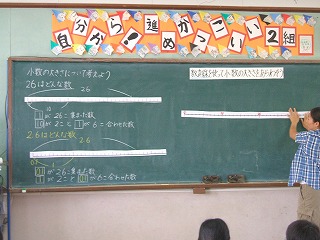 自分から！進んで
めっこい2組
小数の大きさについて考えよう
26はどんな数
26
10
1が26こ集まった数
10が2こと1が6こ合わせた数
2.6はどんな数
2.6
0.1
0.1が26こ集まった数
1が2こと0.1が6こ合わせた数
数直線を使って小数の大きさをあらわそう